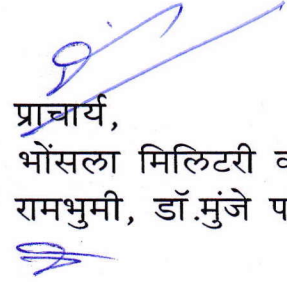 प्राचार्य,
भोंसला मिलिटरी
रामभुमी, डॉ.मुंजे